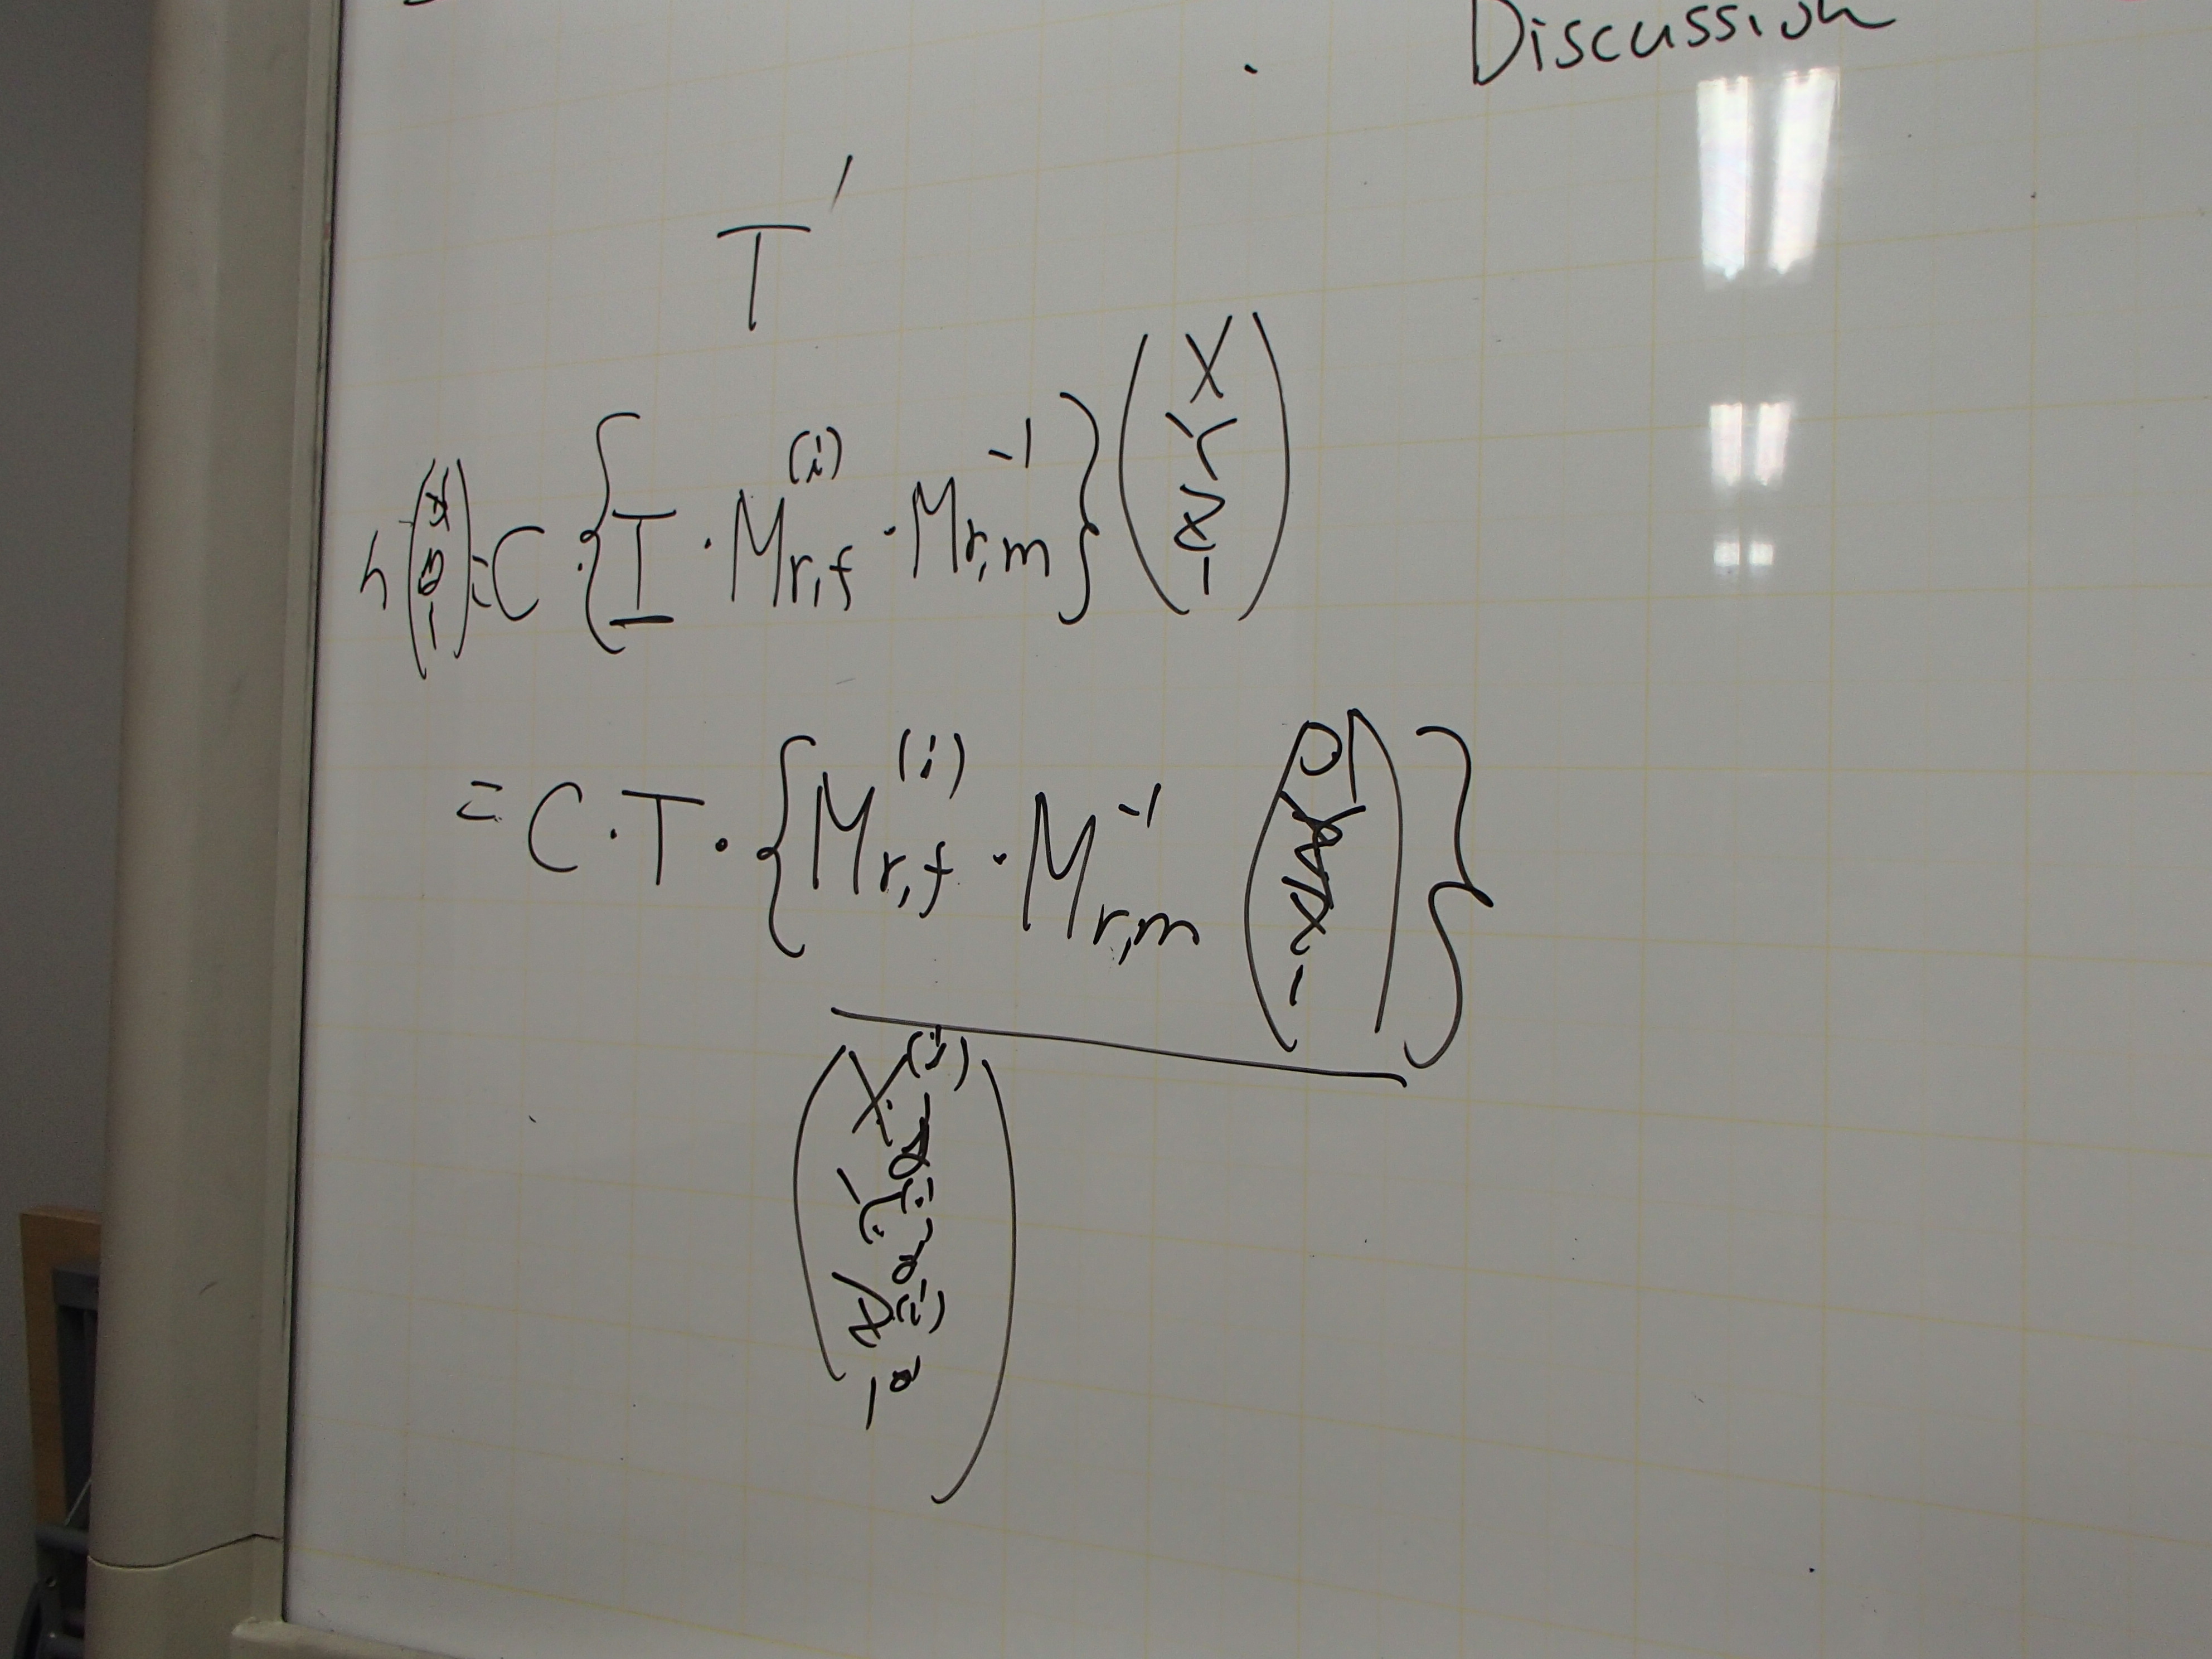 Discussion
T'
h (x y 1) = C · { T · M_{r,f}^{(i)} · M_{r,m}^{-1} } (X Y Z 1)
= C · T · { M_{r,f}^{(i)} · M_{r,m}^{-1} ( 1 ) }
(X^{(i)} Y^{(i)} Z^{(i)} 1)